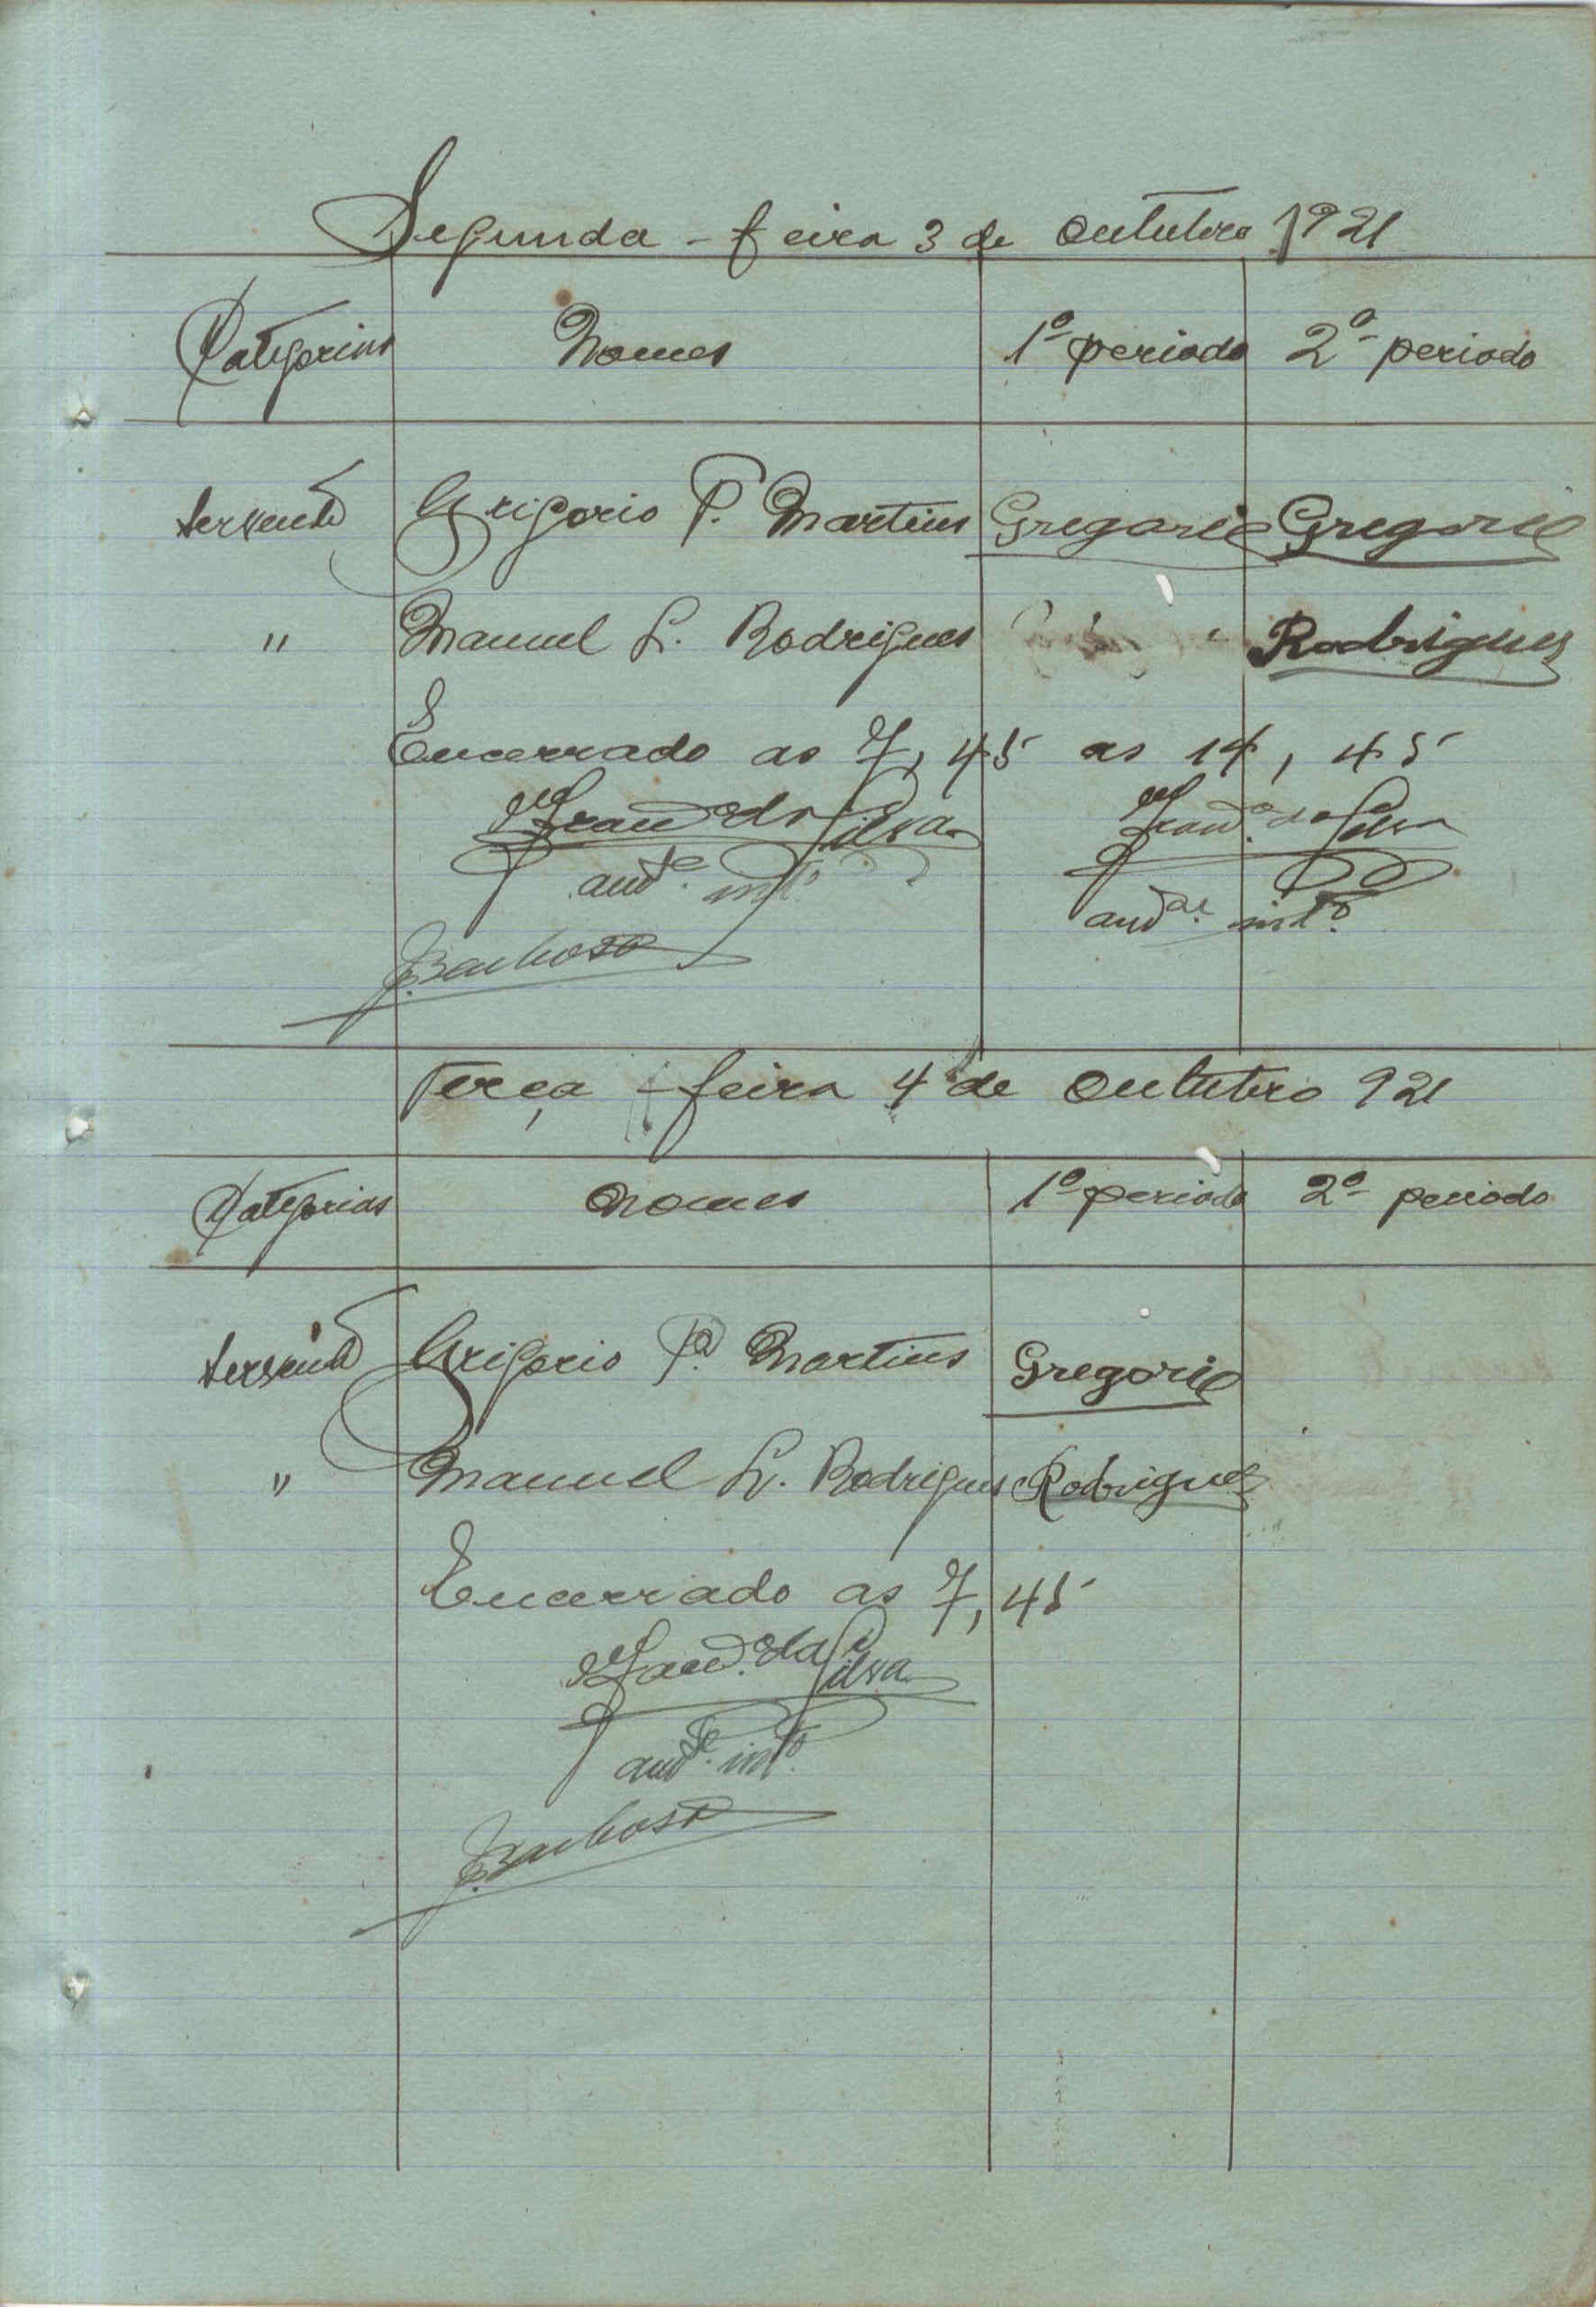 Segunda-feira 3 de Outubro 1921
Categorias Nomes 1º periodo 2º periodo
servente Grigorio P. Martins Gregorio Gregorio
" Manuel L. Rodrigues Rodrigues
Encerrado as 7,45 as 14,45
Franco da Silva Franco da Silva
intº intº
J. Barbosa
Terça-feira 4 de Outubro 921
Categorias Nomes 1º periodo 2º periodo
servente Grigorio P. Martins Gregorio
" Manuel L. Rodrigues Rodrigues
Encerrado as 7,45
da Silva
intº
J. Barbosa